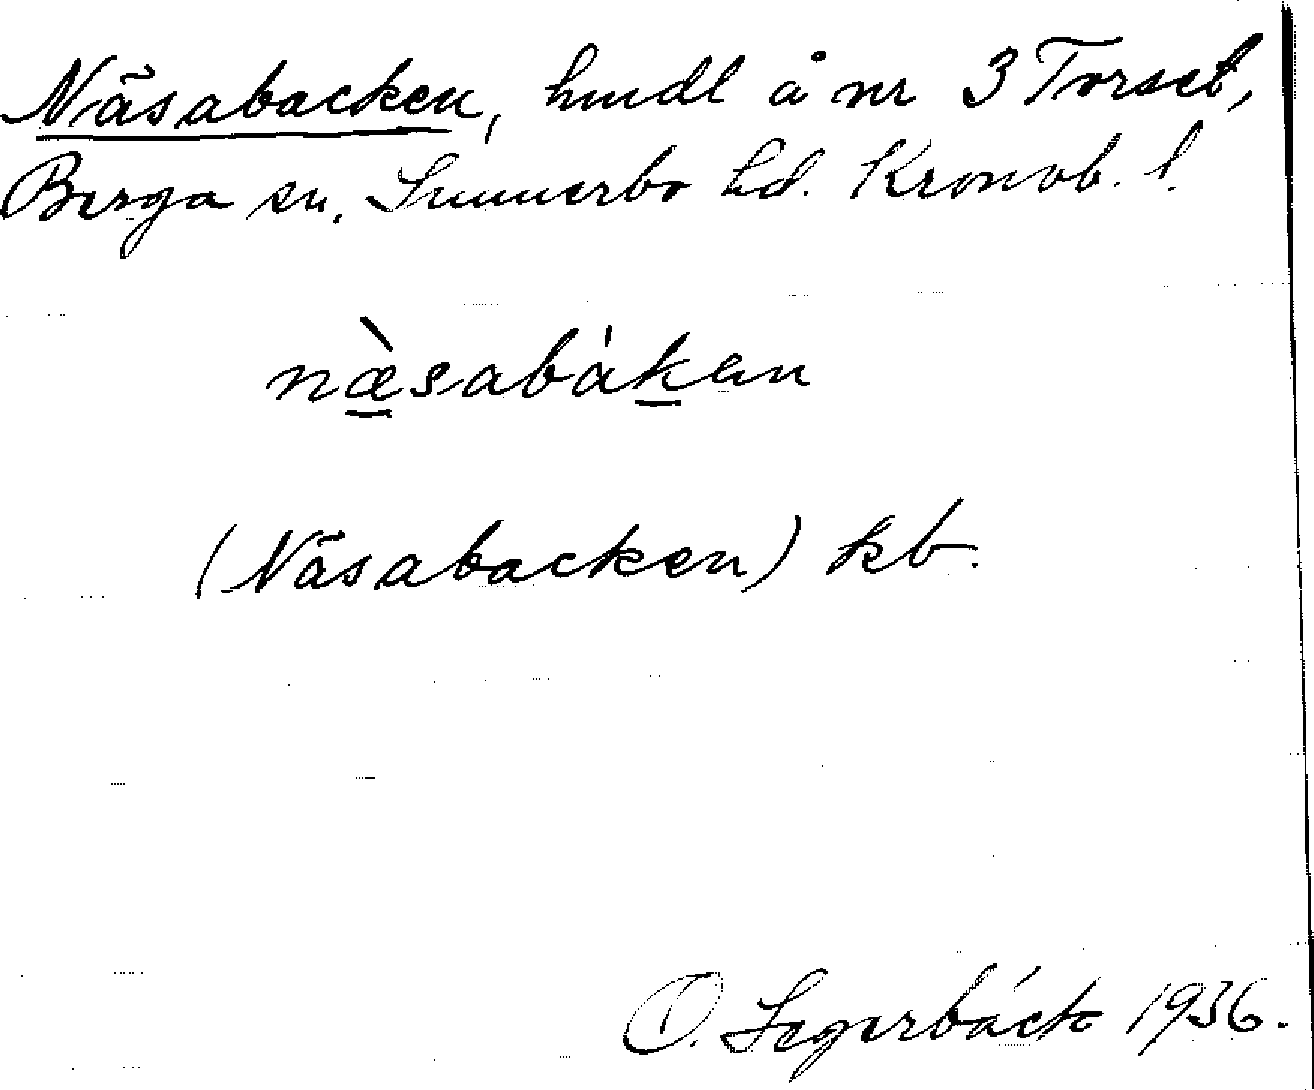 Näsabacken, hmdl å nr 3 Torset,
Berga sn. Sunnerbo hd. Kronob. l.
næ̀sabákan
(Näsabacken) kb.
O. Segerbäck 1936.